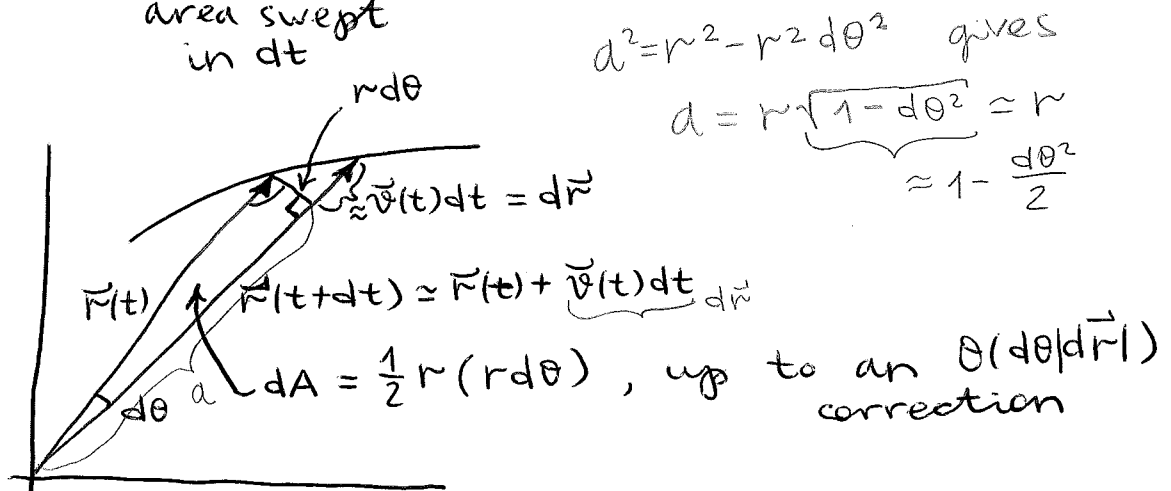 area swept
in dt
rdθ
a²=r²-r²dθ² gives
a = r√(1-dθ²) ≃ r
≈ 1- dθ²/2
≈v⃗(t)dt = dr⃗
r⃗(t)
r⃗(t+dt) ≃ r⃗(t)+ v⃗(t)dt
dr⃗
dθ
a
dA = ½ r (rdθ) , up to an θ(dθ|dr⃗|)
correction